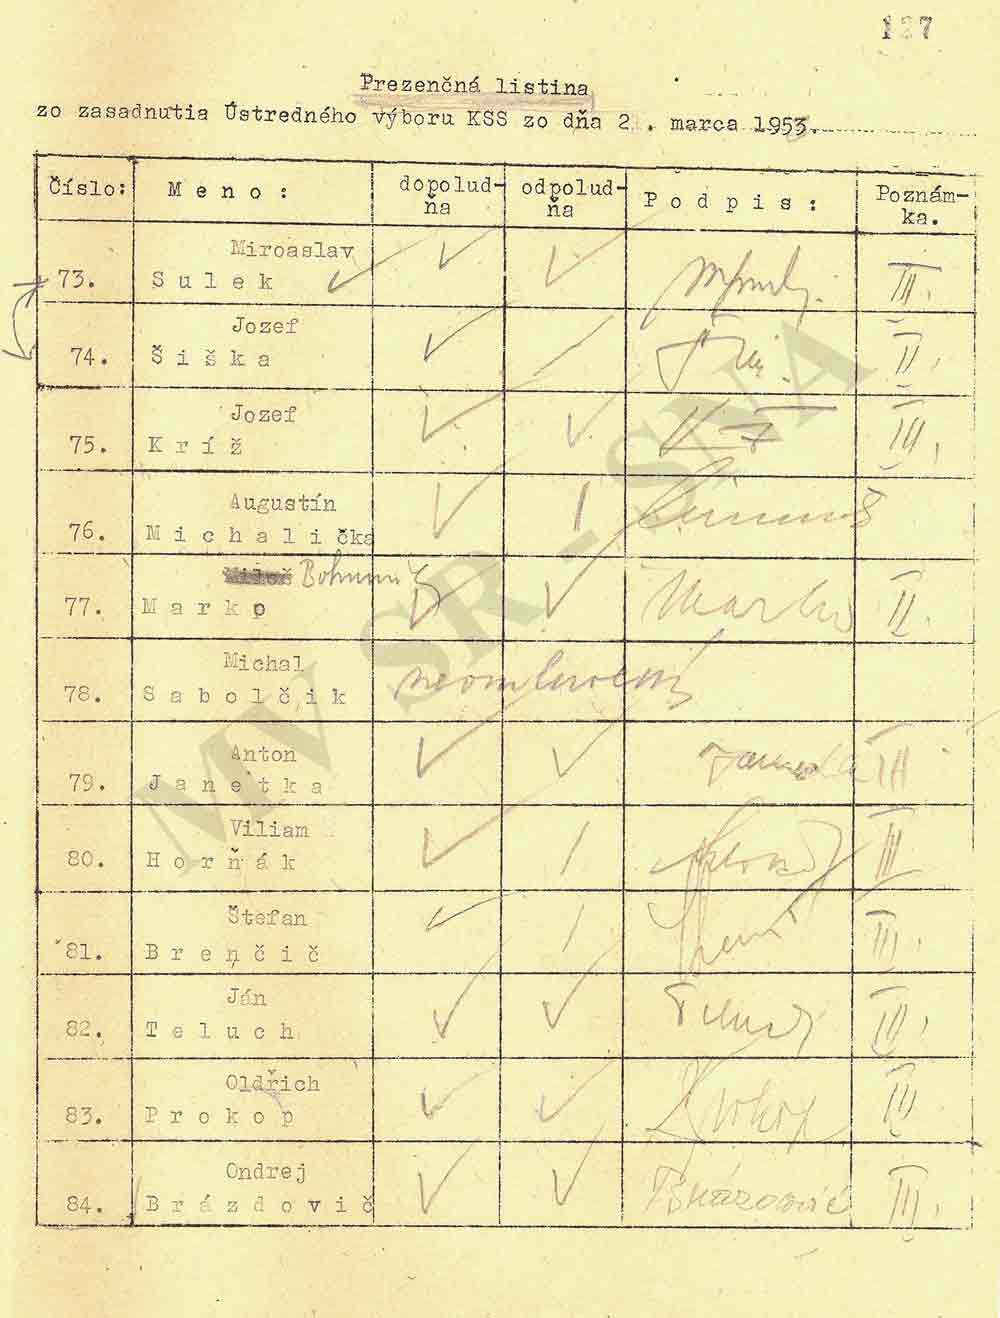 127
Prezenčná listina
zo zasadnutia Ústredného výboru KSS zo dňa 2 . marca 1953.
Číslo: Meno: dopolud-ňa odpolud-ňa Podpis: Poznám-ka.
Miroaslav
73. Sulek III.
Jozef
74. Šiška II.
Jozef
75. Kríž III.
Augustín
76. Michalička
Miloš Bohumil
77. Marko Marko II.
Michal
78. Sabolčik neomluvený
Anton
79. Janetka Janetka III
Viliam
80. Horňák III
Štefan
81. Brenčič III.
Ján
82. Teluch Teluch III.
Oldřich
83. Prokop Prokop III
Ondrej
84. Brázdovič Brázdovič III.
MV SR - SNA